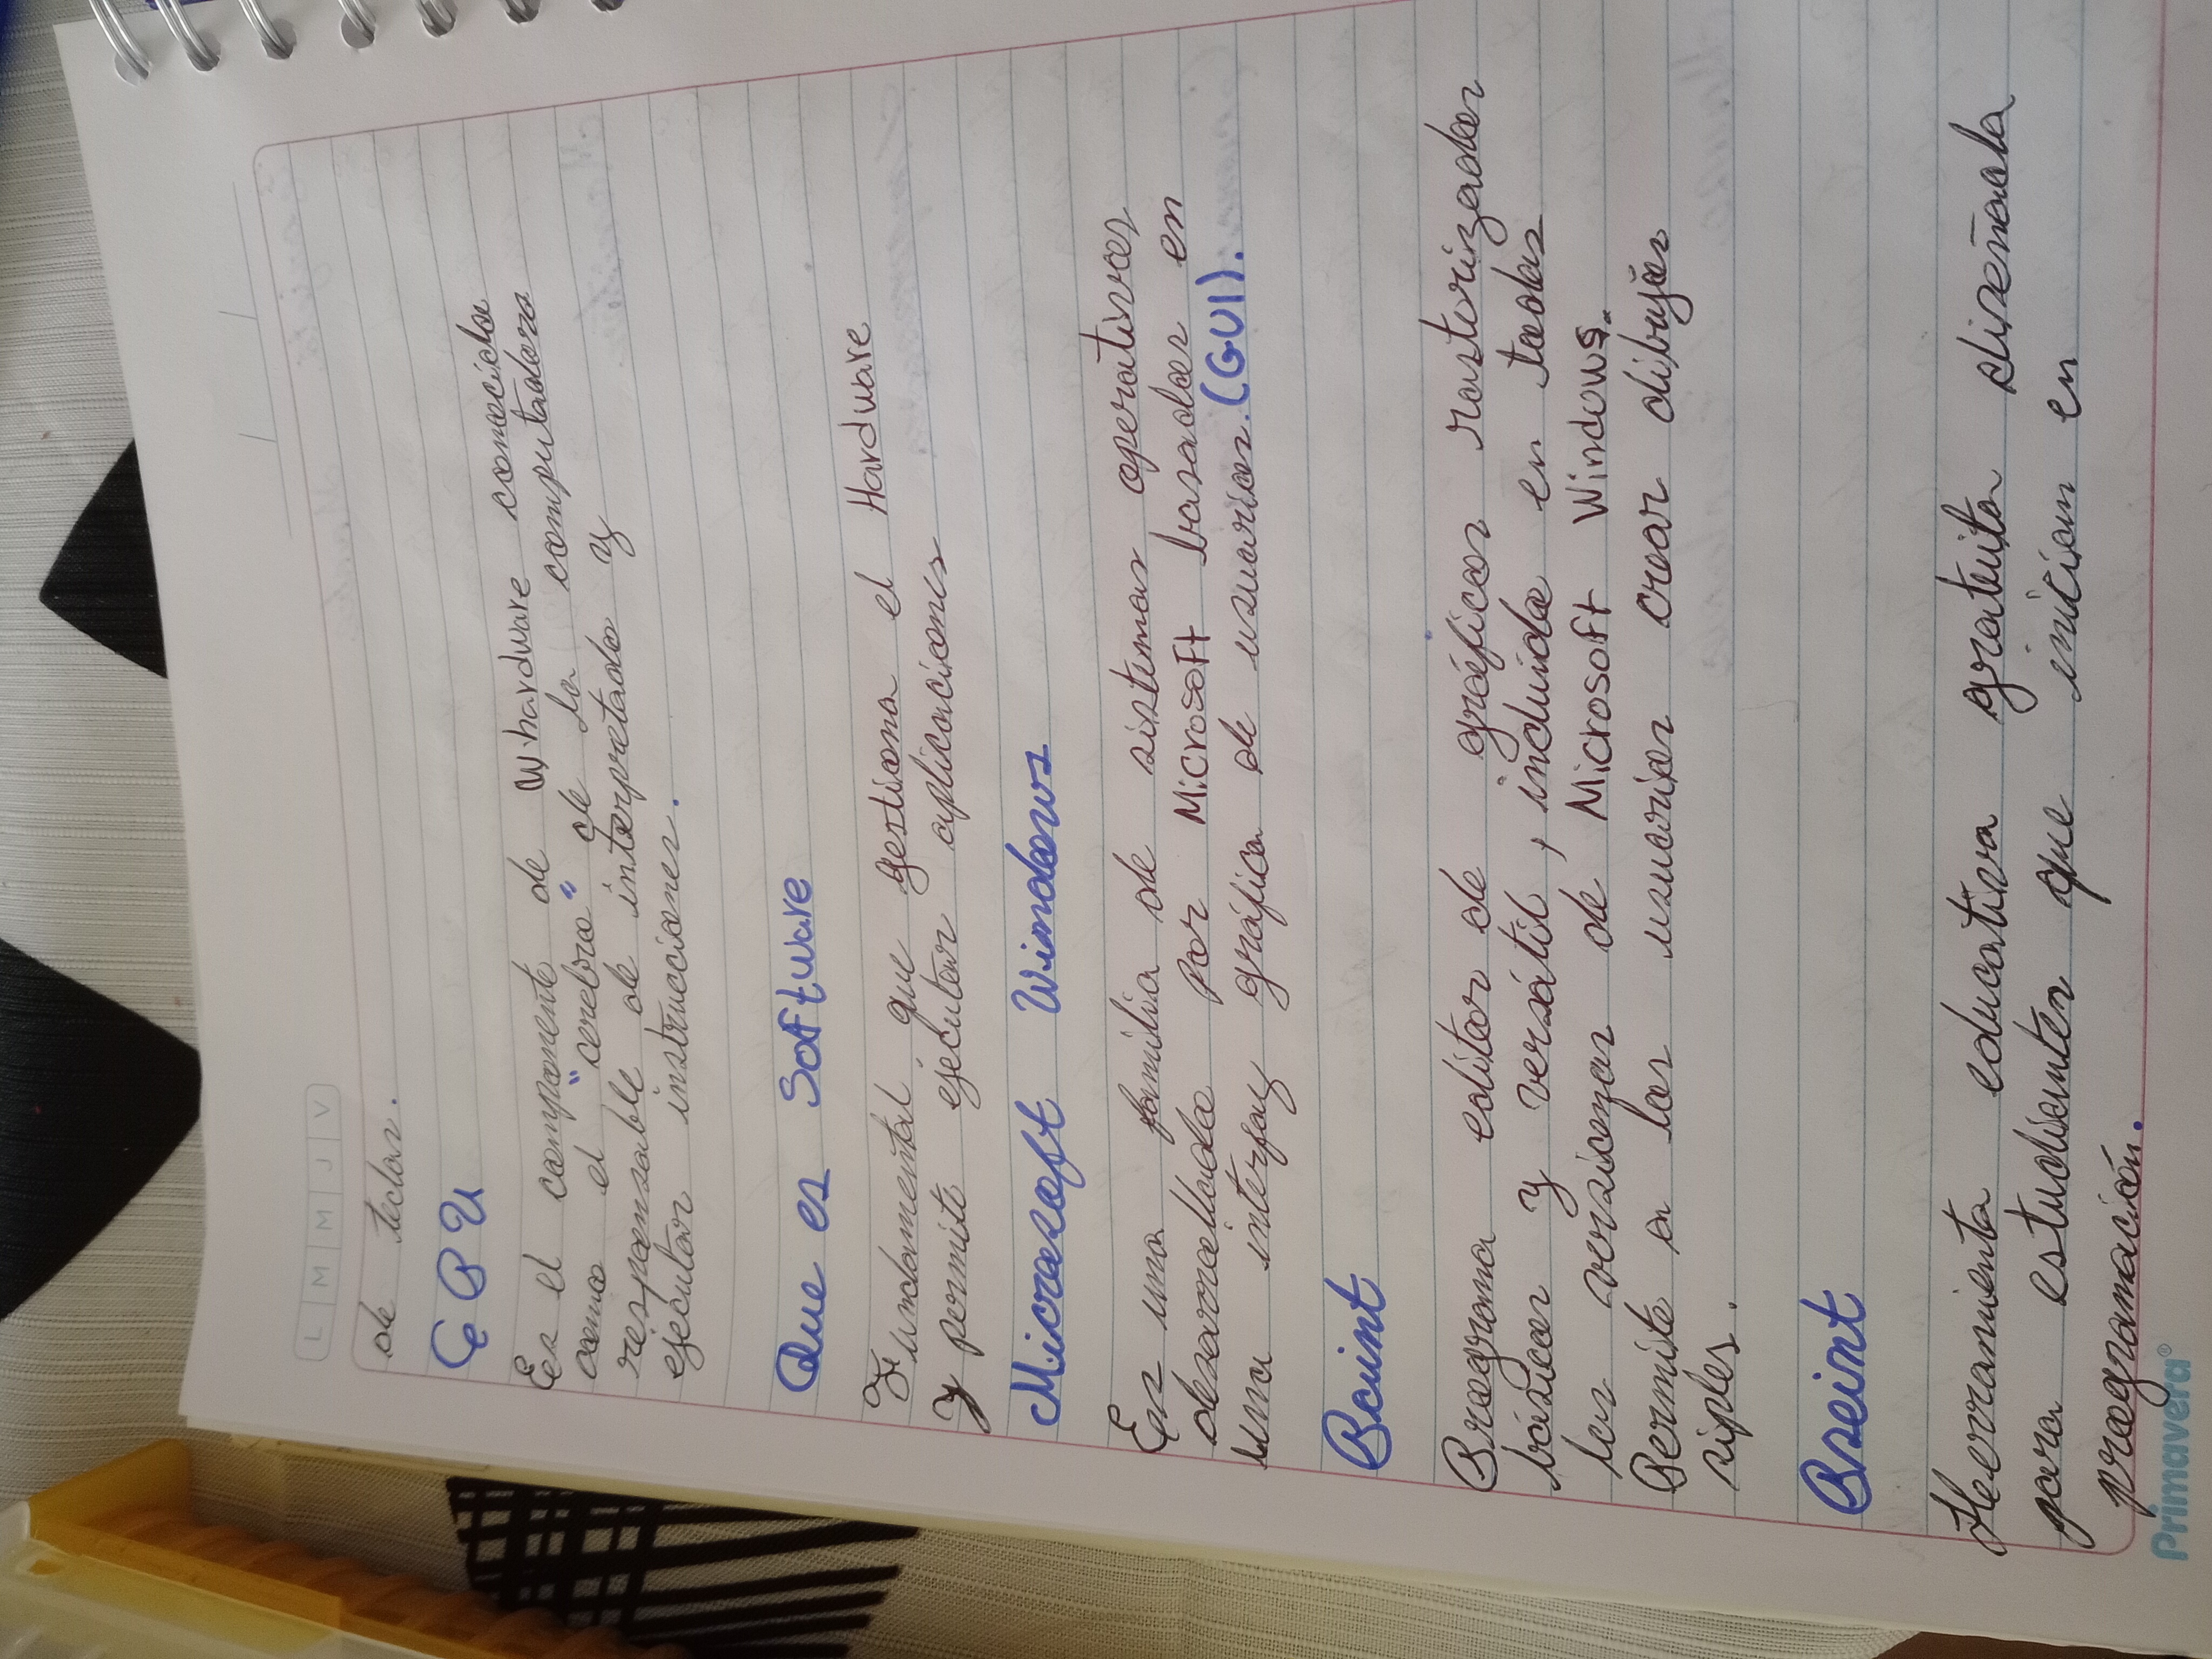 L M M J V
de teclas.
CPU
Es el componente de hardware conocido
como el "cerebro" de la computadora
responsable de interpretado y
ejecutar instrucciones.
Que es Software
Fundamental que gestiona el Hardware
y permite ejecutar aplicaciones
Microsoft Windows
Es una familia de sistemas operativos
desarrollado por Microsoft basados en
una interfaz gráfica de usuarios.(GUI).
Paint
Programa editor de gráficos rasterizados
básicos y versátil, incluido en todas
las versiones de Microsoft Windows.
Permite a los usuarios crear dibujos
siples.
Pseint
Herramienta educativa gratuita diseñada
para estudiantes que inician en
programación.
Primavera®